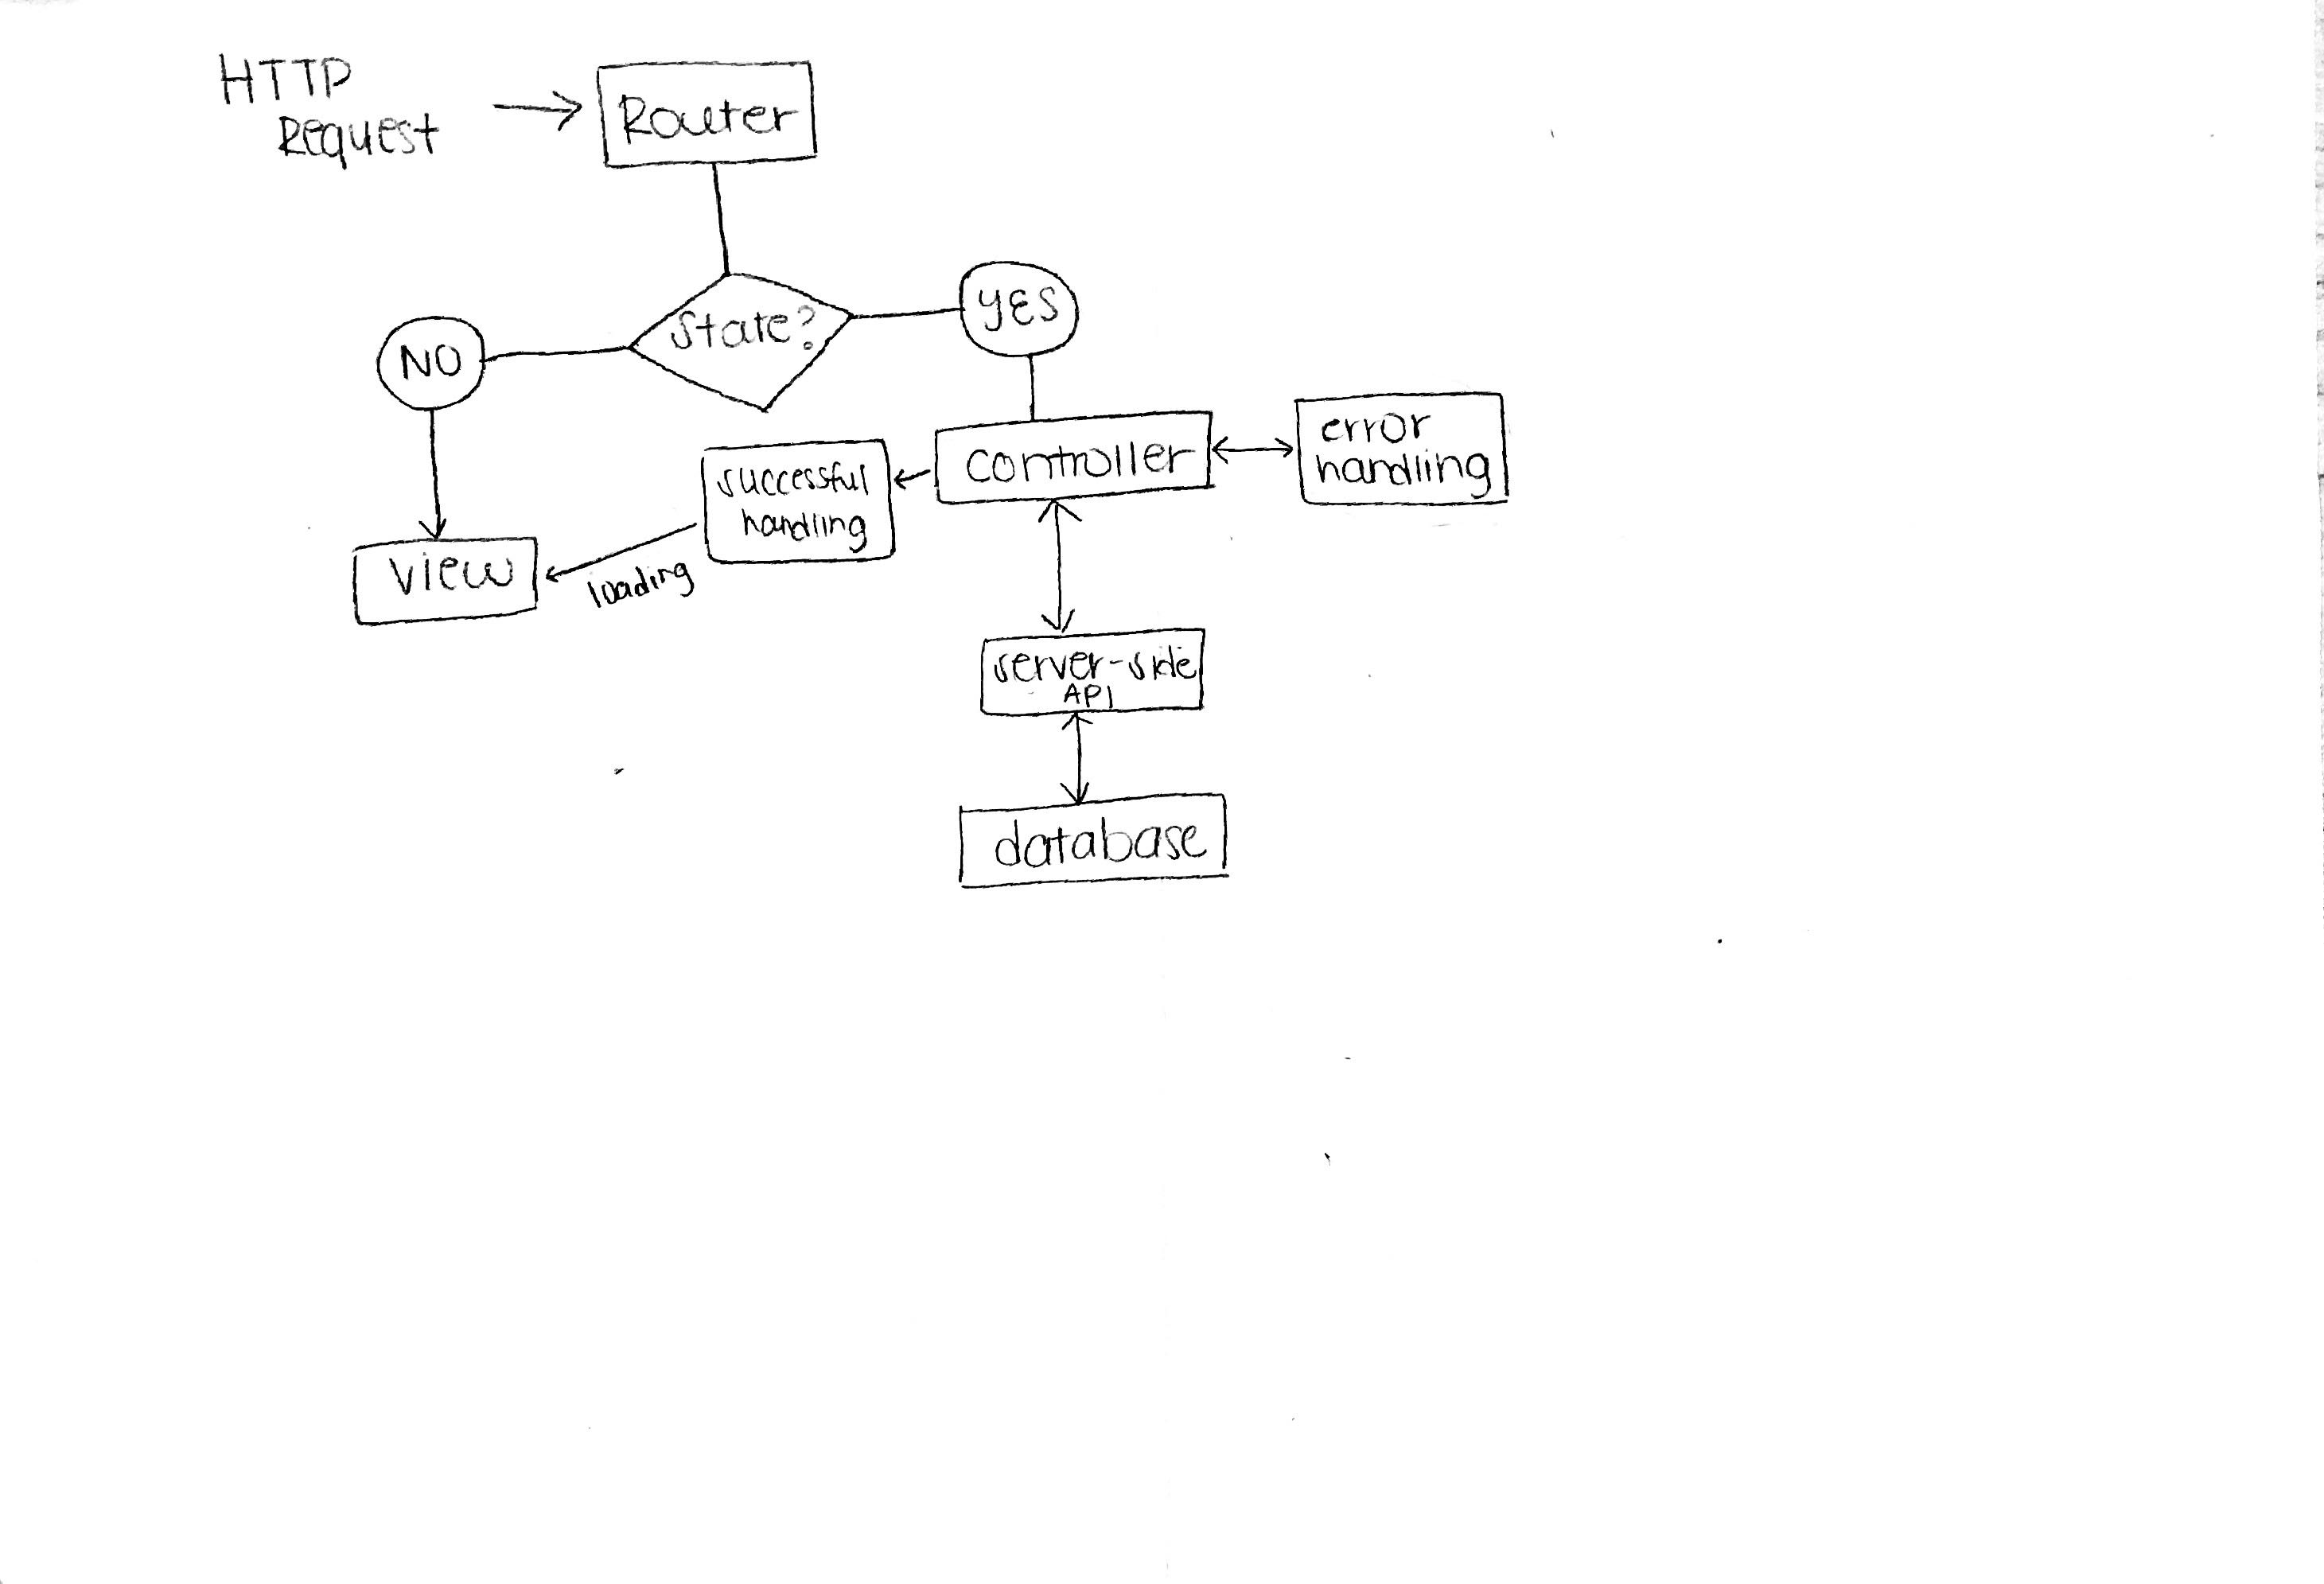 HTTP
Request
Router
State?
YES
NO
controller
error
handling
successful
handling
view
loading
server-side
API
database